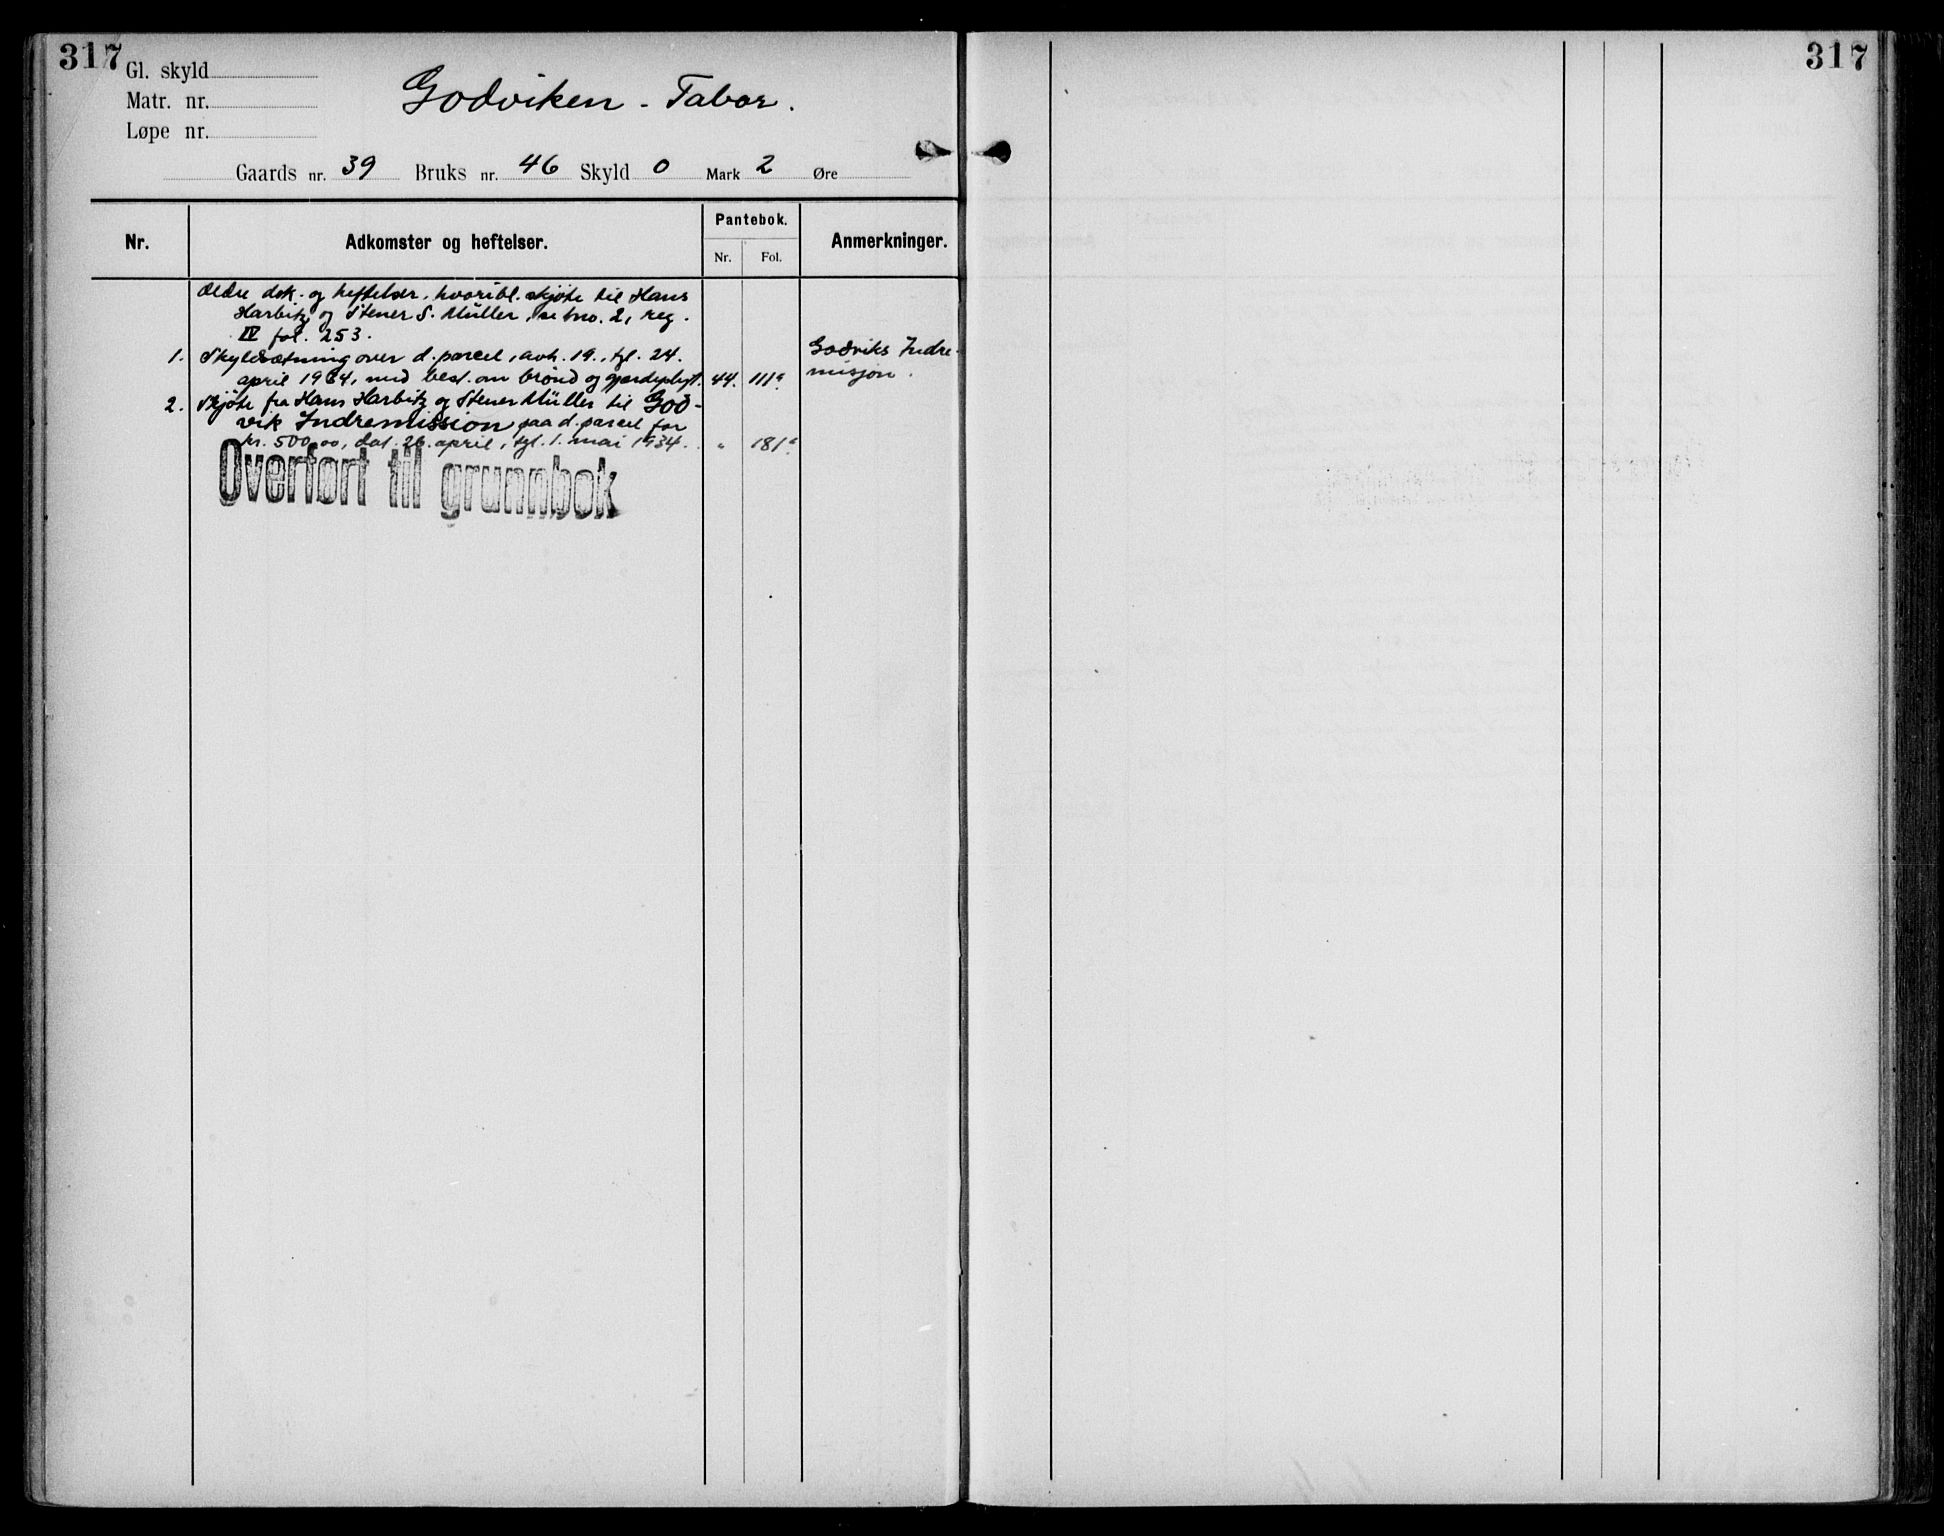 317
317
Gl. skyld
Matr. nr.
Løpe nr.
Godviken - Tabor.
Gaards nr. 39 Bruks nr. 46 Skyld 0 Mark 2 Øre
Nr.
Adkomster og heftelser.
Pantebok.
Nr.
Fol.
Anmerkninger.
Ældre dok. og heftelser, hvoribl. skjøte til Hans
Harbitz og Stener S. Müller, se bno. 2, reg.
IV fol. 253.
1. Skyldsætning over d. parcel, avh. 19., tgl. 24.
april 1934, med best. om brønd og gjerdepligt. 44. 111a
Godviks Indre-
misjon.
2. Skjøte fra Hans Harbitz og Stener Müller til God-
vik Indremission paa d. parcel for
kr. 500,00, dat. 26. april, tgl. 1. mai 1934. " 181a
Overført til grunnbok